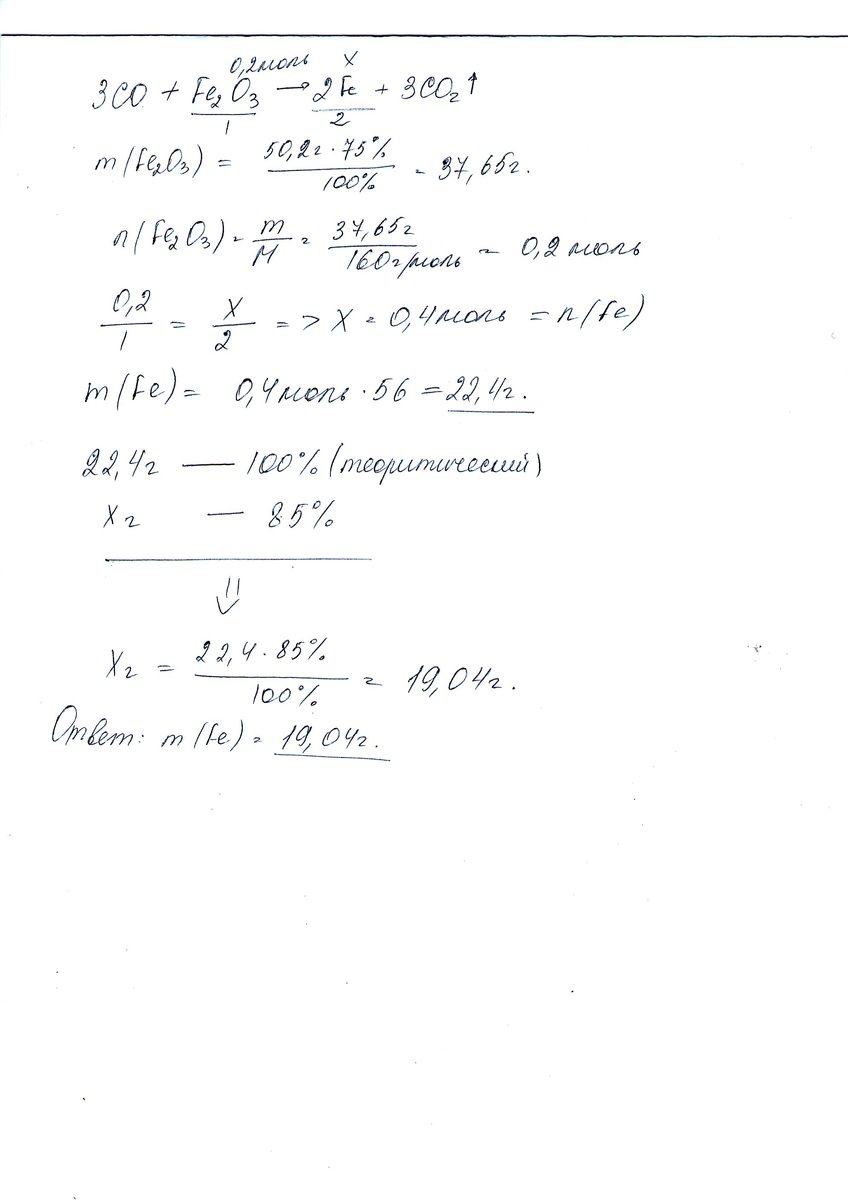 0,2моль x
3CO + Fe₂O₃ → 2Fe + 3CO₂↑
1 2
m(Fe₂O₃) = 50,2г·75% / 100% = 37,65г.
n(Fe₂O₃) = m/M = 37,65г / 160г/моль = 0,2 моль
0,2/1 = X/2 => X = 0,4моль = n(Fe)
m(Fe) = 0,4моль·56 = 22,4г.
22,4г — 100% (теоритический)
Xг — 85%
⇓
Xг = 22,4·85% / 100% = 19,04г.
Ответ: m(Fe) = 19,04г.